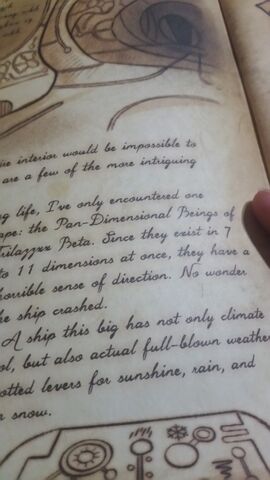 the interior would be impossible to
are a few of the more intriguing
ng life, I've only encountered one
ope: the Pan-Dimensional Beings of
Trilazzxx Beta. Since they exist in 7
to 11 dimensions at once, they have a
horrible sense of direction. No wonder
he ship crashed.
A ship this big has not only climate
ol, but also actual full-blown weather
otted levers for sunshine, rain, and
r snow.